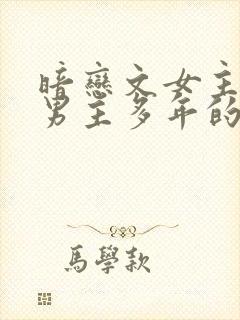 暗戀文女主
男主多年的
馬學款